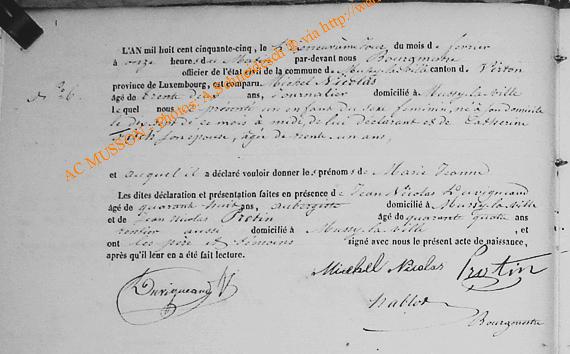 L'AN mil huit cent cinquante-cinq, le jour du mois de fevrier
à onze heures du Matin par-devant nous Bourgmestre
officier de l'état civil de la commune de Mussy-la-ville canton de Virton
province de Luxembourg, est comparu Michel Nicolas
âgé de trente ans, Journalier domicilié à Mussy-la-ville
lequel nous a présenté un enfant du sexe feminin, né à son domicile
le de ce mois à midi, de lui déclarant et de Catherine
son épouse, âgée de trente un ans,
et auquel il a déclaré vouloir donner les prénoms de Marie Jeanne
Les dites déclaration et présentation faites en présence de Jean Nicolas Duvigneaud
âgé de quarante huit ans, aubergiste domicilié à Mussy-la-ville
et de Jean Nicolas Protin âgé de quarante quatre ans
rentier aussi domicilié à Mussy-la-ville, et
ont les père et témoins signé avec nous le présent acte de naissance,
après qu'il leur en a été fait lecture.
Michel Nicolas Protin
Duvigneaud
Bourgmestre
AC MUSSON, Photos: A.Schleich-Esch/A. via http://ww